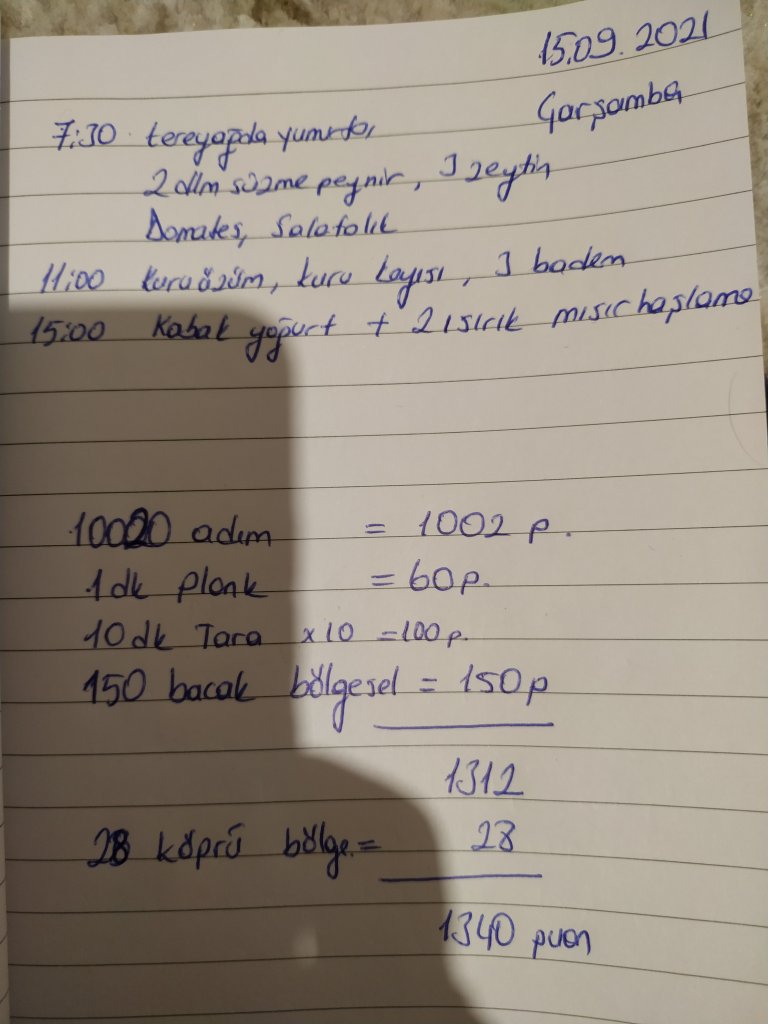 15.09.2021
Çarşamba
7:30 tereyağda yumurta,
2 dlm süzme peynir, 3 zeytin
Domates, Salatalık
11:00 kuru üzüm, kuru kayısı, 3 badem
15:00 Kabak yoğurt + 2 ısırık mısır haşlama
10020 adım = 1002 p.
1dk plank = 60p.
10dk Tara x10 =100p.
150 bacak bölgesel = 150p
1312
28 köprü bölge.= 28
1340 puan